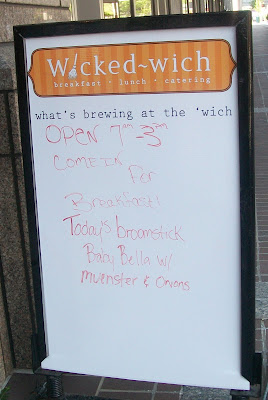 Wicked~wich
breakfast • lunch • catering
what's brewing at the 'wich
OPEN 7am 3pm
COME IN
For
Breakfast!
Today's broomstick
Baby Bella w/
Muenster & Onions